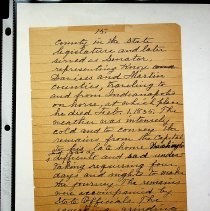 137
County in the State
legislature and later
served as Senator,
representing Knox and
Daviess and Martin
Counties, traveling to
and from Indianapolis
on horse, at which place
he died Feb. 1, 1835. The
weather was intensely
cold and to convey the
remains from the Capital
to his late home
difficult and sad under
taking requiring four
days and nights to make
the journey. The remains
were accompanied by
State Officials. The